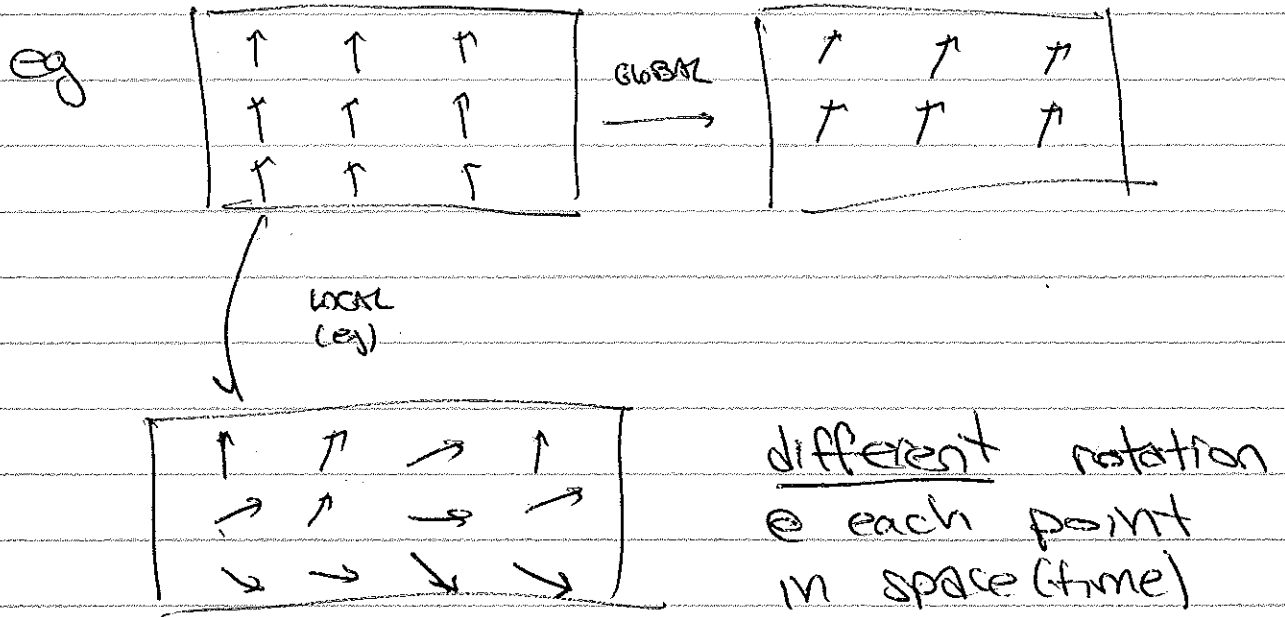 eg
GLOBAL
LOCAL
(eg)
different rotation
@ each point
in space(time)